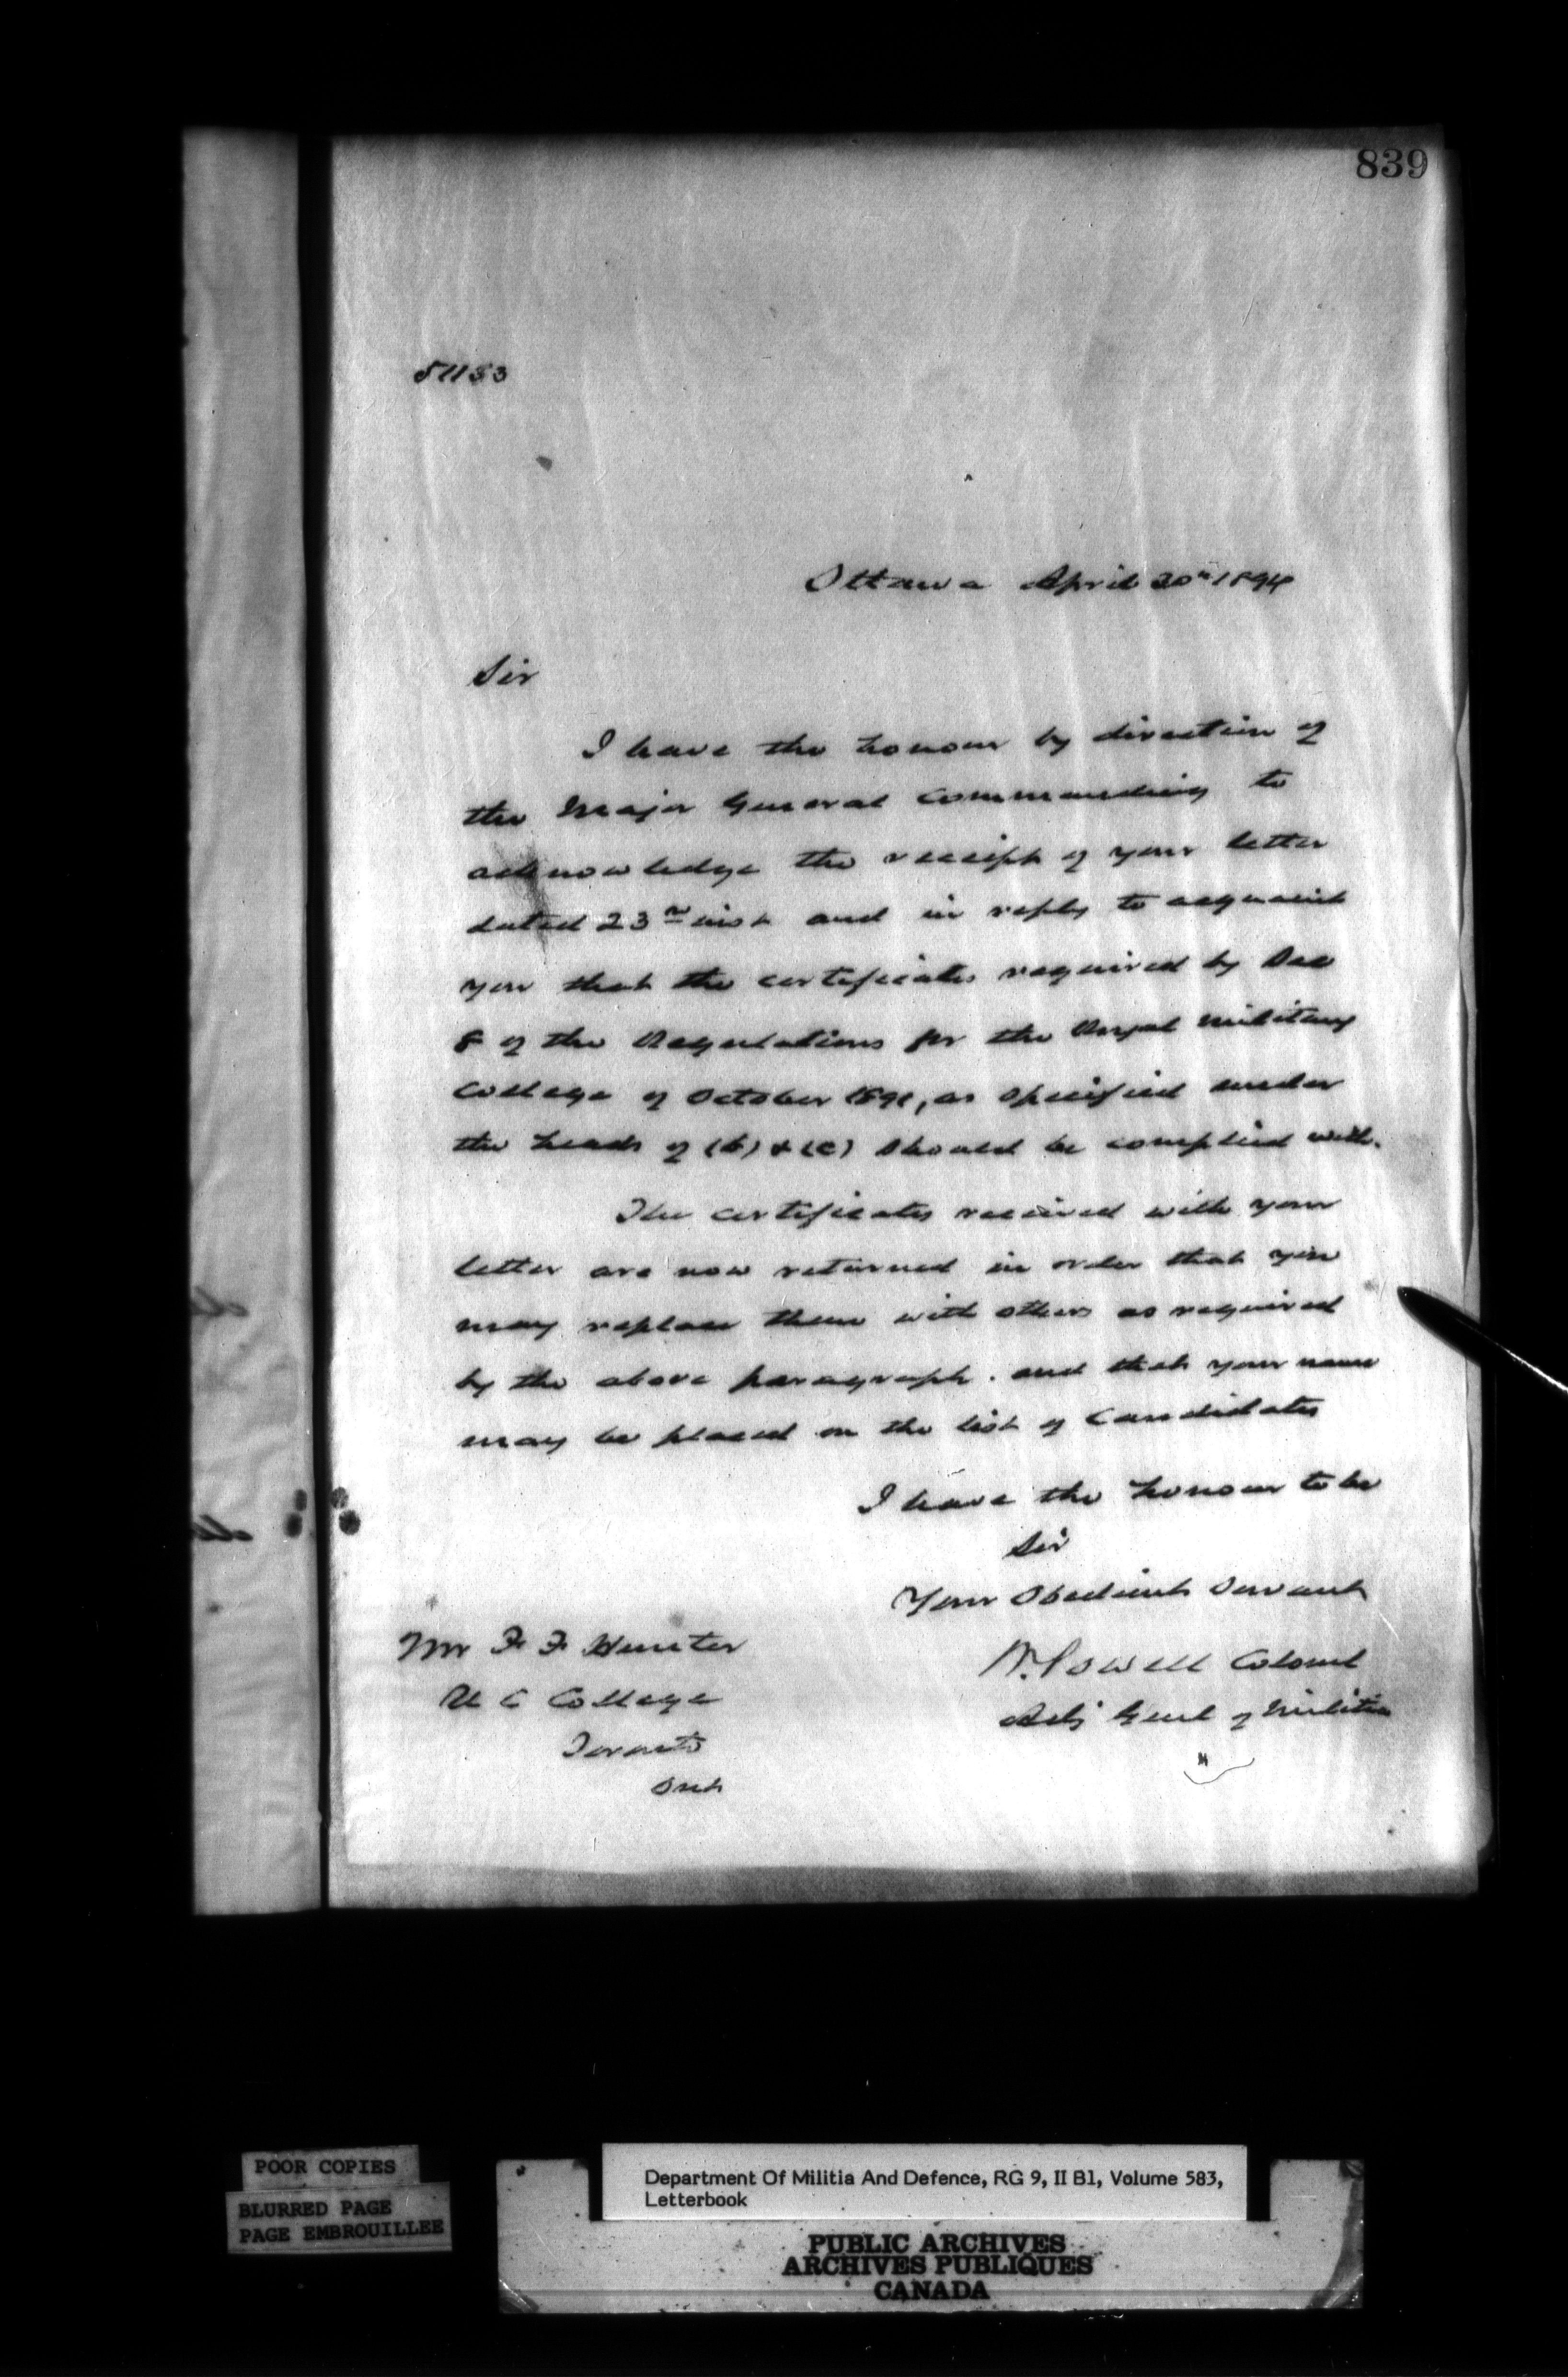 839
51183
Ottawa April 30th 1894
Sir
I have the honour by direction of
the Major General Commanding to
acknowledge the receipt of your letter
dated 23rd inst and in reply to acquaint
you that the certificates required by Sec
8 of the Regulations for the Royal Military
College of October 1891, as specified under
the heads of (b) & (c) should be complied with.
The certificates received with your
letter are now returned in order that you
may replace them with others as required
by the above paragraph. and that your name
may be placed on the list of Candidates
I have the honour to be
Sir
Your Obedient Servant
W. Powell Colonel
Adj Genl of Militia
Mr F F Hunter
U C College
Toronto
Ont
POOR COPIES
BLURRED PAGE
PAGE EMBROUILLEE
Department Of Militia And Defence, RG 9, II B1, Volume 583,
Letterbook
PUBLIC ARCHIVES
ARCHIVES PUBLIQUES
CANADA